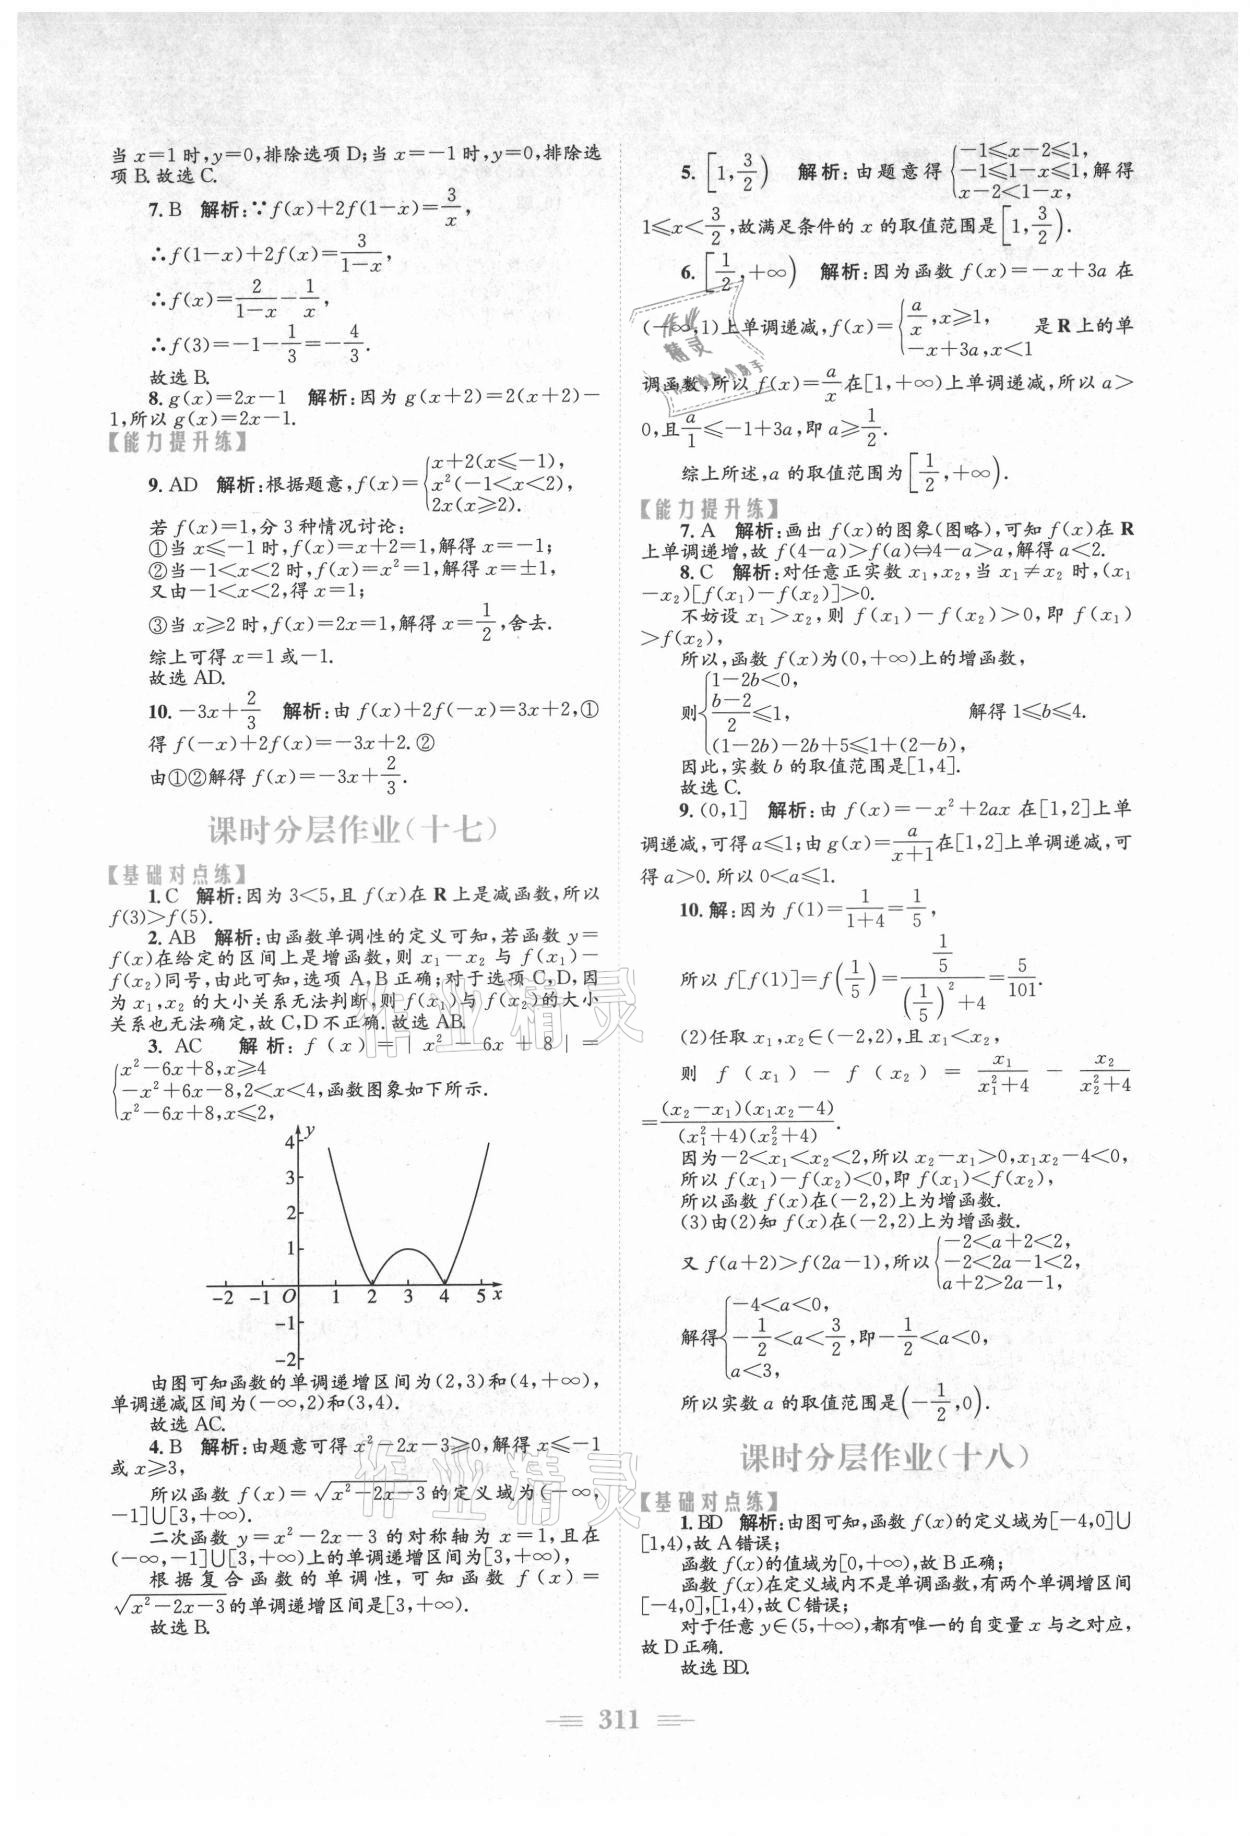 当 x=1 时,y=0,排除选项 D;当 x=-1 时,y=0,排除选
项 B.故选 C.
7. B 解析:∵f(x)+2f(1-x)=3/x,
∴f(1-x)+2f(x)=3/(1-x),
∴f(x)=2/(1-x)-1/x,
∴f(3)=-1-1/3=-4/3.
故选 B.
8. g(x)=2x-1 解析:因为 g(x+2)=2(x+2)-
1,所以 g(x)=2x-1.
【能力提升练】
9. AD 解析:根据题意,f(x)={x+2(x≤-1),
x²(-1<x<2),
2x(x≥2).
若 f(x)=1,分 3 种情况讨论:
①当 x≤-1 时,f(x)=x+2=1,解得 x=-1;
②当-1<x<2 时,f(x)=x²=1,解得 x=±1,
又由-1<x<2,得 x=1;
③当 x≥2 时,f(x)=2x=1,解得 x=1/2,舍去.
综上可得 x=1 或-1.
故选 AD.
10. -3x+2/3 解析:由 f(x)+2f(-x)=3x+2,①
得 f(-x)+2f(x)=-3x+2.②
由①②解得 f(x)=-3x+2/3.
课时分层作业(十七)
【基础对点练】
1. C 解析:因为 3<5,且 f(x)在 R 上是减函数,所以
f(3)>f(5).
2. AB 解析:由函数单调性的定义可知,若函数 y=
f(x)在给定的区间上是增函数,则 x₁-x₂ 与 f(x₁)-
f(x₂)同号,由此可知,选项 A,B 正确;对于选项 C,D,因
为 x₁,x₂ 的大小关系无法判断,则 f(x₁)与 f(x₂)的大小
关系也无法确定,故 C,D 不正确.故选 AB.
3. AC 解析: f(x)=|x²-6x+8|=
{x²-6x+8,x≥4
-x²+6x-8,2<x<4,函数图象如下所示.
x²-6x+8,x≤2,
y
4
3
2
1
-2 -1 O 1 2 3 4 5 x
-1
-2
由图可知函数的单调递增区间为(2,3)和(4,+∞),
单调递减区间为(-∞,2)和(3,4).
故选 AC.
4. B 解析:由题意可得 x²-2x-3≥0,解得 x≤-1
或 x≥3,
所以函数 f(x)=√(x²-2x-3)的定义域为(-∞,
-1]∪[3,+∞).
二次函数 y=x²-2x-3 的对称轴为 x=1,且在
(-∞,-1]∪[3,+∞)上的单调递增区间为[3,+∞),
根据复合函数的单调性,可知函数 f(x)=
√(x²-2x-3)的单调递增区间是[3,+∞).
故选 B.
5. [1,3/2) 解析:由题意得{-1≤x-2≤1,
-1≤1-x≤1,解得
x-2<1-x,
1≤x<3/2,故满足条件的 x 的取值范围是[1,3/2).
6. [1/2,+∞) 解析:因为函数 f(x)=-x+3a 在
(-∞,1)上单调递减,f(x)={a/x,x≥1,
-x+3a,x<1 是 R 上的单
调函数,所以 f(x)=a/x在[1,+∞)上单调递减,所以 a>
0,且a/1≤-1+3a,即 a≥1/2.
综上所述,a 的取值范围为[1/2,+∞).
【能力提升练】
7. A 解析:画出 f(x)的图象(图略),可知 f(x)在 R
上单调递增,故 f(4-a)>f(a)⇔4-a>a,解得 a<2.
8. C 解析:对任意正实数 x₁,x₂,当 x₁≠x₂ 时,(x₁
-x₂)[f(x₁)-f(x₂)]>0.
不妨设 x₁>x₂,则 f(x₁)-f(x₂)>0,即 f(x₁)
>f(x₂),
所以,函数 f(x)为(0,+∞)上的增函数,
则{1-2b<0,
(b-2)/2≤1, 解得 1≤b≤4.
(1-2b)-2b+5≤1+(2-b),
因此,实数 b 的取值范围是[1,4].
故选 C.
9. (0,1] 解析:由 f(x)=-x²+2ax 在[1,2]上单
调递减,可得 a≤1;由 g(x)=a/(x+1)在[1,2]上单调递减,可
得 a>0.所以 0<a≤1.
10. 解:因为 f(1)=1/(1+4)=1/5,
所以 f[f(1)]=f(1/5)=(1/5)/((1/5)²+4)=5/101.
(2)任取 x₁,x₂∈(-2,2),且 x₁<x₂,
则 f(x₁)-f(x₂)=x₁/(x₁²+4)-x₂/(x₂²+4)
=(x₂-x₁)(x₁x₂-4)/((x₁²+4)(x₂²+4)).
因为-2<x₁<x₂<2,所以 x₂-x₁>0,x₁x₂-4<0,
所以 f(x₁)-f(x₂)<0,即 f(x₁)<f(x₂),
所以函数 f(x)在(-2,2)上为增函数.
(3)由(2)知 f(x)在(-2,2)上为增函数.
又 f(a+2)>f(2a-1),所以{-2<a+2<2,
-2<2a-1<2,
a+2>2a-1,
解得{-4<a<0,
-1/2<a<3/2,即-1/2<a<0,
a<3,
所以实数 a 的取值范围是(-1/2,0).
课时分层作业(十八)
【基础对点练】
1. BD 解析:由图可知,函数 f(x)的定义域为[-4,0]∪
[1,4),故 A 错误;
函数 f(x)的值域为[0,+∞),故 B 正确;
函数 f(x)在定义域内不是单调函数,有两个单调增区间
[-4,0],[1,4),故 C 错误;
对于任意 y∈(5,+∞),都有唯一的自变量 x 与之对应,
故 D 正确.
故选 BD.
311
作业精灵
作业精灵
作业
精灵